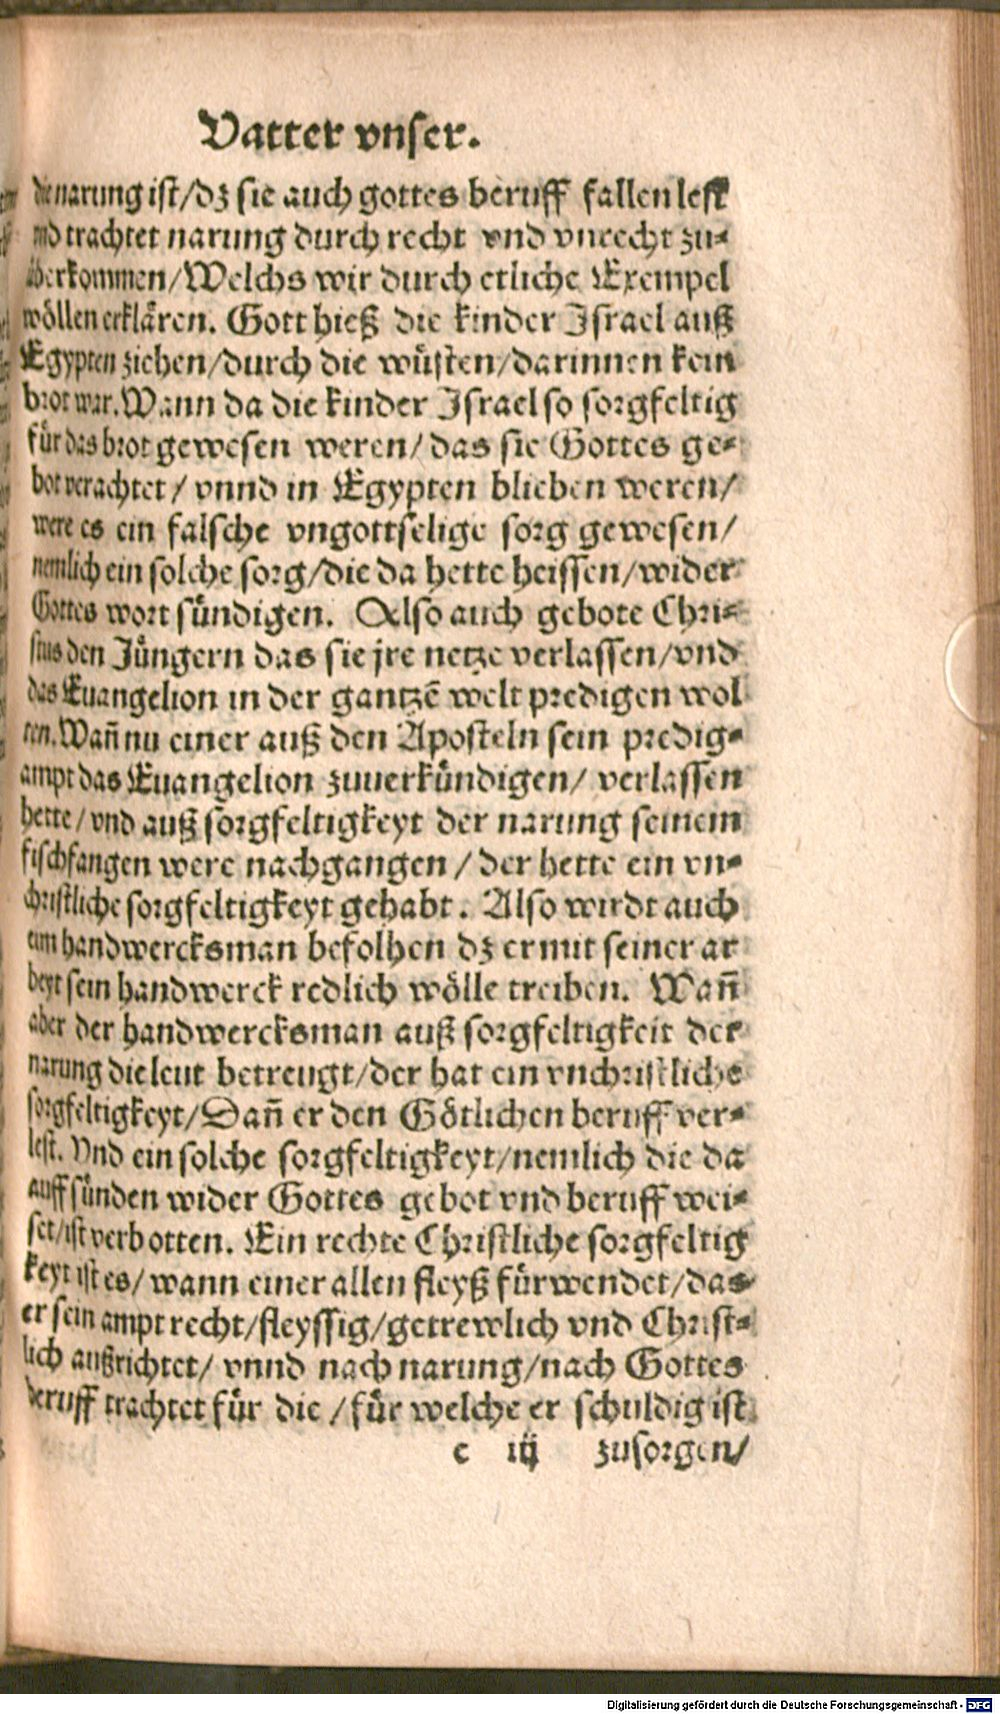 Vatter vnser.
die narung ist/dz sie auch gottes beruff fallen lest
vnd trachtet narung durch recht vnd vnrecht zu-
überkommen/Welchs wir durch etliche Exempel
wöllen erklären. Gott hieß die kinder Israel auß
Egypten ziehen/durch die wüsten/darinnen kein
brot war. Wann da die kinder Israel so sorgfeltig
für das brot gewesen weren/das sie Gottes ge-
bot verachtet/vnnd in Egypten blieben weren/
were es ein falsche vngottselige sorg gewesen/
nemlich ein solche sorg/die da hette heissen/wider
Gottes wort sündigen. Also auch gebote Chri-
stus den Jüngern das sie jre netze verlassen/vnd
das Euangelion in der gantzē welt predigen wol
ten. Wañ nu einer auß den Aposteln sein predig-
ampt das Euangelion zuuerkündigen/verlassen
hette/vnd auß sorgfeltigkeyt der narung seinem
fischfangen were nachgangen/der hette ein vn-
christliche sorgfeltigkeyt gehabt. Also wirdt auch
eim handwercksman befolhen dz er mit seiner ar
beyt sein handwerck redlich wölle treiben. Wañ
aber der handwercksman auß sorgfeltigkeit der
narung die leut betreugt/der hat ein vnchristliche
sorgfeltigkeyt/Dañ er den Götlichen beruff ver-
lest. Vnd ein solche sorgfeltigkeyt/nemlich die da
auff sünden wider Gottes gebot vnd beruff wei-
set/ist verbotten. Ein rechte Christliche sorgfeltig
keyt ist es/wann einer allen fleyß fürwendet/das
er sein ampt recht/fleyssig/getrewlich vnd Christ-
lich außrichtet/vnnd nach narung/nach Gottes
beruff trachtet für die/für welche er schuldig ist
c iij zusorgen/
Digitalisierung gefördert durch die Deutsche Forschungsgemeinschaft - DFG